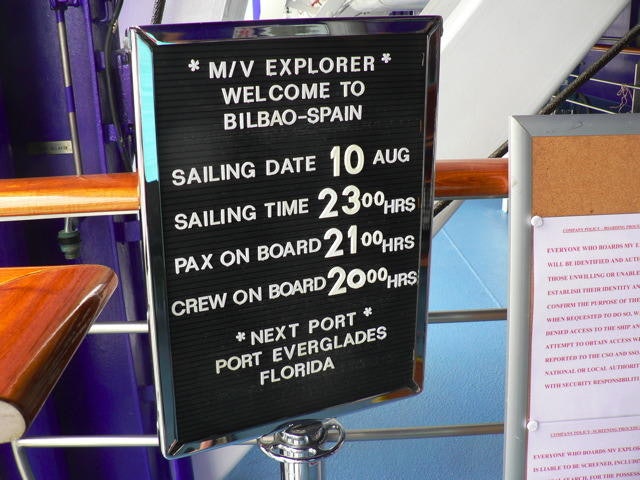 * M/V EXPLORER *
WELCOME TO
BILBAO-SPAIN
SAILING DATE 10 AUG
SAILING TIME 2300HRS
PAX ON BOARD 2100HRS
CREW ON BOARD 2000HRS
*NEXT PORT*
PORT EVERGLADES
FLORIDA
COMPANY POLICY - BOARDING
EVERYONE WHO BOARDS MV
WILL BE IDENTIFIED AND
THOSE UNWILLING OR
ESTABLISH THEIR IDENTITY
CONFIRM THE PURPOSE OF
WHEN REQUESTED TO DO SO,
DENIED ACCESS TO THE SHIP
ATTEMPT TO OBTAIN ACCESS
REPORTED TO THE CSO AND
NATIONAL OR LOCAL
WITH SECURITY
COMPANY POLICY - SCREENING
EVERYONE WHO BOARDS MV
IS LIABLE TO BE SCREENED,
SEARCH, FOR THE